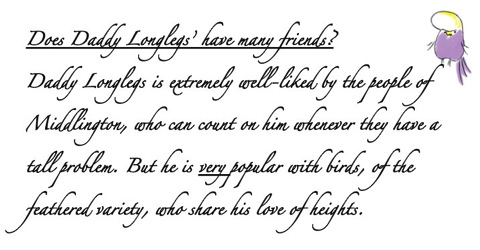 Does Daddy Longlegs' have many friends?
Daddy Longlegs is extremely well-liked by the people of
Middlington, who can count on him whenever they have a
tall problem. But he is very popular with birds, of the
feathered variety, who share his love of heights.